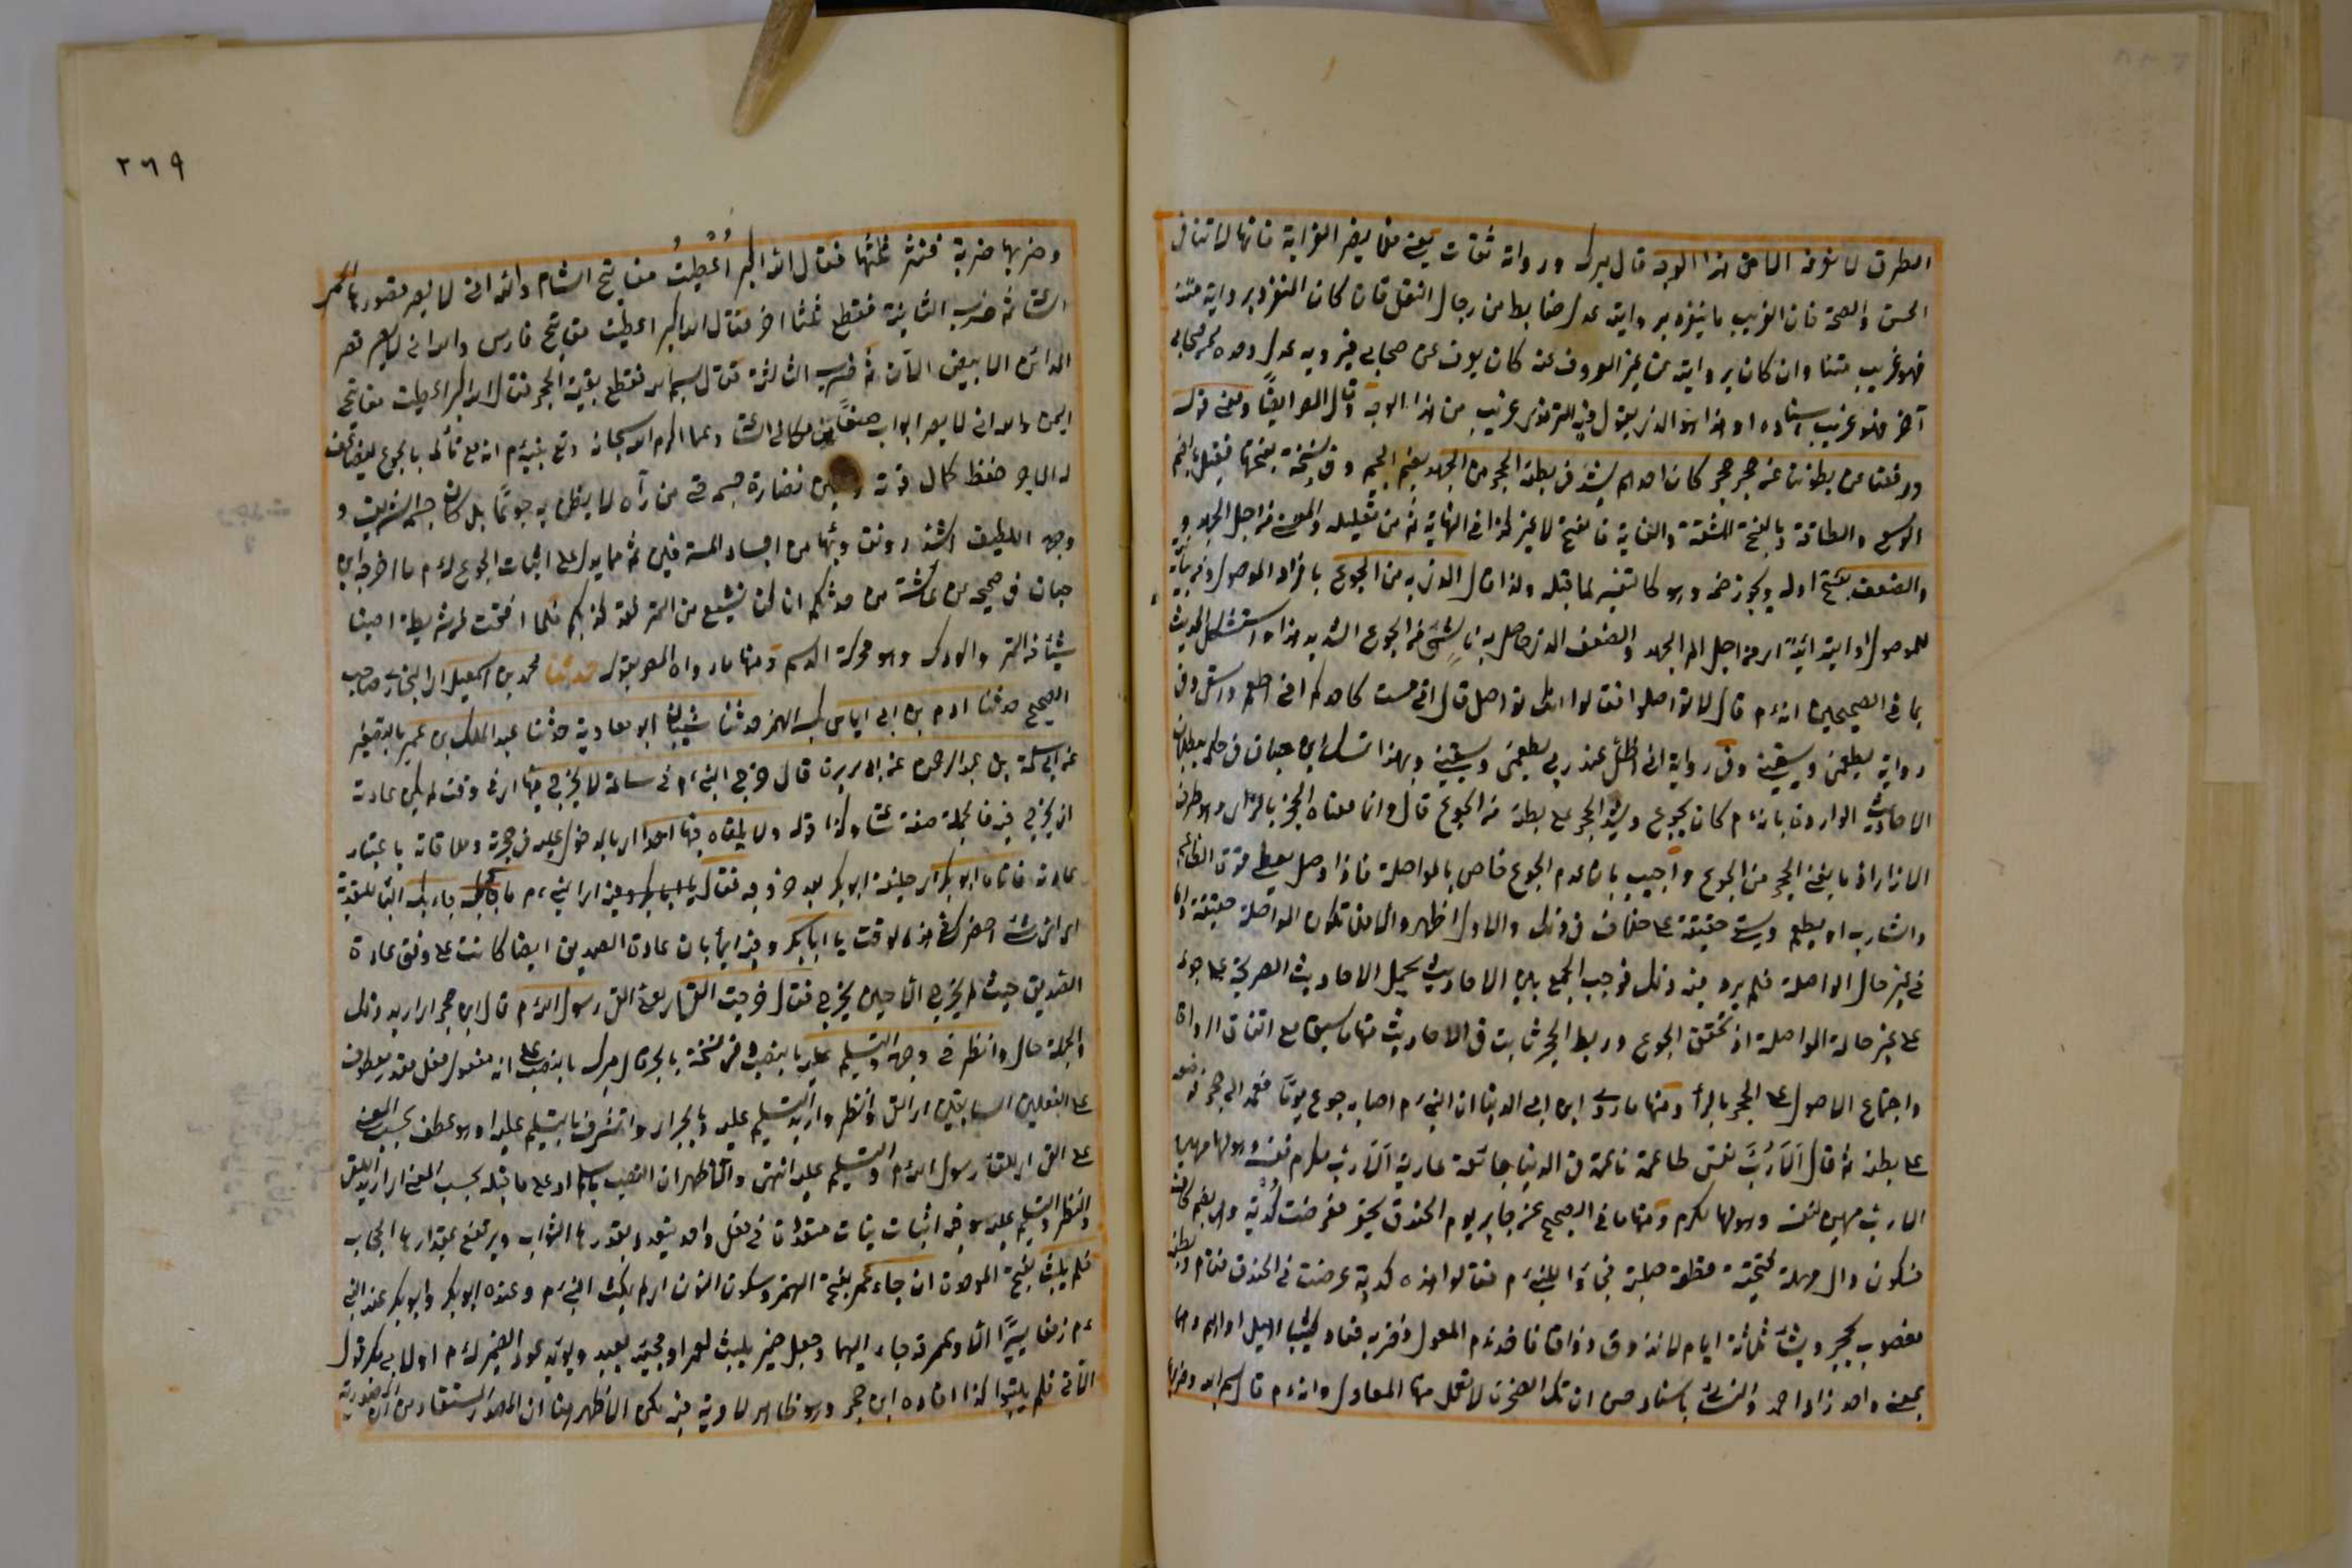 الطرق لا نعرفه الا من هذا الوجه قال ميرك ورواته ثقات يعني فلا يضر الغرابة فانها لا تنافي
الحسن والصحة فان الغريب ما يتفرد بروايته عدل ضابط من رجال النقل فان كان المتفرد برواية متنه
فهو غريب متنا وان كان بروايته عن غير المعروف عنه كان يعرف عن صحابي فيرويه عدل وحده عن صحابي
آخر فهو غريب اسنادا وهذا هو الذي يقول فيه الترمذي غريب من هذا الوجه قال المص ايضًا ومعنى قوله
ورفعنا عن بطوننا عن حجر حجر كان احدهم يشد في بطنه الحجر من الجهد بضم الجيم وفي نسخة بفتحها فقيل بالضم
الوسع والطاقة وبالفتح المشقة والغاية فالفتح لا غير كذا في النهاية ثم من تعليلية والمعنى من اجل الجهد
والضعف بفتح اوله ويجوز ضمه وهو كالتفسير لما قبله ولذا قال الذي به من الجوع بافراد الموصول ومن بيانية
للموصول او ابتدائية اي من اجل الم الجهد والضعف الذي حاصل به ناشئ من الجوع الشديد هذا واستشكل الحديث
بما في الصحيحين انه م قال لا تواصلوا فقالوا انك تواصل قال اني لست كاحدكم اني اطعم واسقى وفي
رواية يطعمني ويسقيني وفي رواية اني اظل عند ربي يطعمني ويسقيني وبهذا تمسك ابن حبان في حكمه ببطلان
الاحاديث الواردة بانه م كان يجوع ويشد الحجر على بطنه من الجوع قال وانما معناه الحجز بالزاي وهو طرف
الازار اذ ما يغني الحجر من الجوع واجيب بان عدم الجوع خاص بالمواصلة فاذا وصل يعطى قوة الطاعم
والشارب او يطعم ويسقى حقيقة على خلاف في ذلك والاول اظهر والا فلا تكون المواصلة حقيقة واما
في غير حال المواصلة فلم يرد فيه ذلك فوجب الجمع بين الاحاديث بحمل الاحاديث الصريحة على جوعه
على غير حالة المواصلة اذ تحقق الجوع وربط الحجر ثابت في الاحاديث منها ما سبق مع اتفاق الرواة
واجماع الاصول على الحجر بالراء ومنها ما روى ابن ابي الدنيا ان النبي م اصابه جوع يومًا فعمد الى حجر فوضعه
على بطنه ثم قال ألا رُبَّ نفس طاعمة ناعمة في الدنيا جائعة عارية ألا رب مكرم نفسه وهو لها مهين
الا رب مهين لنفسه وهو لها مكرم ومنها ما في الصحيح عن جابر يوم الخندق نحفر فعرضت كُدْية وهي بضم كاف
فسكون دال مهملة فتحتية قطعة صلبة فجاؤا للنبي م فقالوا هذه كدية عرضت في الخندق فقام وبطنه
معصوب بحجر ولبثنا ثلاثة ايام لا نذوق ذواقا فاخذ م المعول فضربه فعاد كثيبا اهيل او اهيم وهما
بمعنى واحد زاد احمد والنسائي باسناد حسن ان تلك الصخرة لا تعمل فيها المعاول وانه م قال بسم الله وضربها
٢٦٩
وضربها ضربة فنثر ثلثها فقال الله اكبر اُعْطِيتُ مفاتيح الشام والله اني لابصر قصورها الحمر
الساعة ثم ضرب الثانية فقطع ثلثا اخر فقال الله اكبر اعطيت مفاتيح فارس والله اني لابصر قصر
المدائن الابيض الآن ثم ضرب الثالثة فقال بسم الله فقطع بقية الحجر فقال الله اكبر اعطيت مفاتيح
اليمن والله اني لابصر ابواب صنعاء من مكاني الساعة ومما اكرم الله سبحانه وتع نبيه م انه مع تألمه بالجوع ليضاعف
له الاجر حفظ كمال قوته نضارة جسمه حتى من رآه لا يظن به جوعًا بل كان جسمه الشريف و
وجهه اللطيف اشد رونقا وبهاء من اجساد المترفين ثم مما يدل على اثبات الجوع له م ما اخرجه ابن
حبان في صحيحه عن عائشة من حدثكم انا كنا نشبع من التمر فقد كذبكم فلما افتتحت قريظة اصبنا
شيئا من التمر والودك وهو محركة الدسم ومنها ما رواه المص بقوله حدثنا محمد بن اسمعيل اي البخاري صاحب
الصحيح حدثنا ادم بن ابي اياس بكسر الهمز حدثنا شيبان ابو معاوية حدثنا عبد الملك بن عمير بالتصغير
عن ابي سلمة بن عبد الرحمن عن ابي هريرة قال خرج النبي م في ساعة لا يخرج فيها اي في وقت لم يكن عادته
ان يخرج فيه فالجملة صفة ساعة وكذا قوله ولا يلقاه فيها احد اي بالدخول عليه في حجرته وملاقاته باعتبار
عادته فاتاه ابو بكر اي خليفته ابو بكر بعد خروجه فقال يا ابا بكر ما جاء بك الباء للتعدية
اي اي شيء احضرك في هذا الوقت يا ابا بكر وفيه ايماء بان عادة الصديق ايضا كانت على وفق عادة
الصديق حيث لم يخرج الا حين يخرج فقال خرجت القى اي اريد القى رسول الله م قال ابن حجر اي اريد ذلك
والجملة حال وانظر في وجهه والتسليم عليه بالنصب وفي نسخة بالجر قال ميرك بالنصب على انه مفعول فعل مقدر معطوف
على الفعلين السابقين اي القى وانظر واريد التسليم عليه وبالجر اي واتشرف بالتسليم عليه او هو عطف بحسب المعنى
على القى اي للقاء رسول الله م والتسليم عليه انتهى والاظهر ان النصب على ما قبله بحسب المعنى اي اريد اللقى
والنظر والتسليم عليه وفيه اثبات نيات متعددة في فعل واحد يتعدد بقدرها الثواب ويرتفع بمقدارها الحجاب
فلم يلبث بفتح الموحدة ان جاء عمر بفتح الهمز وسكون النون اي لم يمكث النبي م وعنده ابو بكر وابو بكر عند النبي
م زمنا يسيرًا الا وعمر قد جاء اليهما وجعل ضمير يلبث لعمر او مجيئه بعيد ويؤيد عود الضمير له م اولابي بكر قول
الآتي فلم يلبثوا كذا افاده ابن حجر وهو ظاهر لا مرية فيه لكن الاظهر هنا ان المصدر المستفاد من